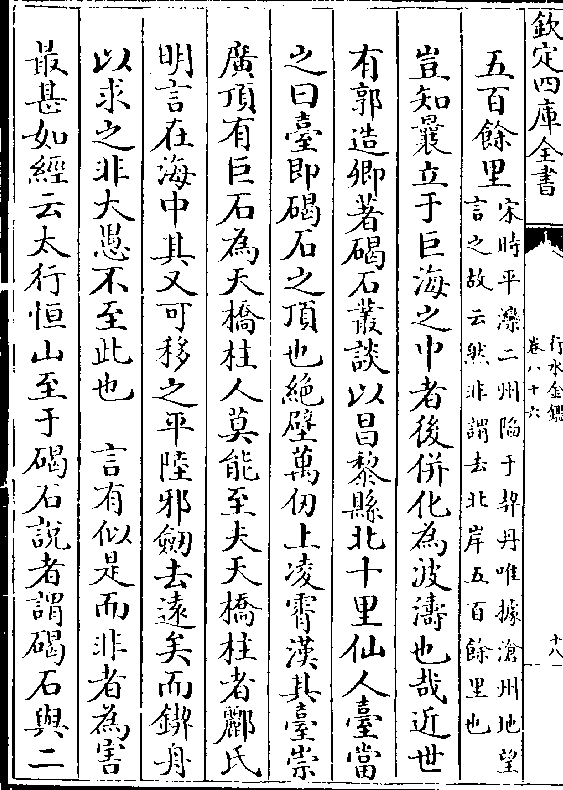 欽定四庫全書
行水金鑑
卷八十六
十八
五百餘里宋時平灤二州陷于契丹唯據滄州地望
言之故云然非謂去北岸五百餘里也
豈知曩立于巨海之中者後併化為波濤也哉近世
有郭造卿著碣石叢談以昌黎縣北十里仙人臺當
之曰臺即碣石之頂也絶壁萬仞上凌霄漢其臺崇
廣頂有巨石為天橋柱人莫能至夫天橋柱者酈氏
明言在海中其又可移之平陸邪劒去遠矣而鍥舟
以求之非大愚不至此也 言有似是而非者為害
最甚如經云太行恒山至于碣石説者謂碣石與二